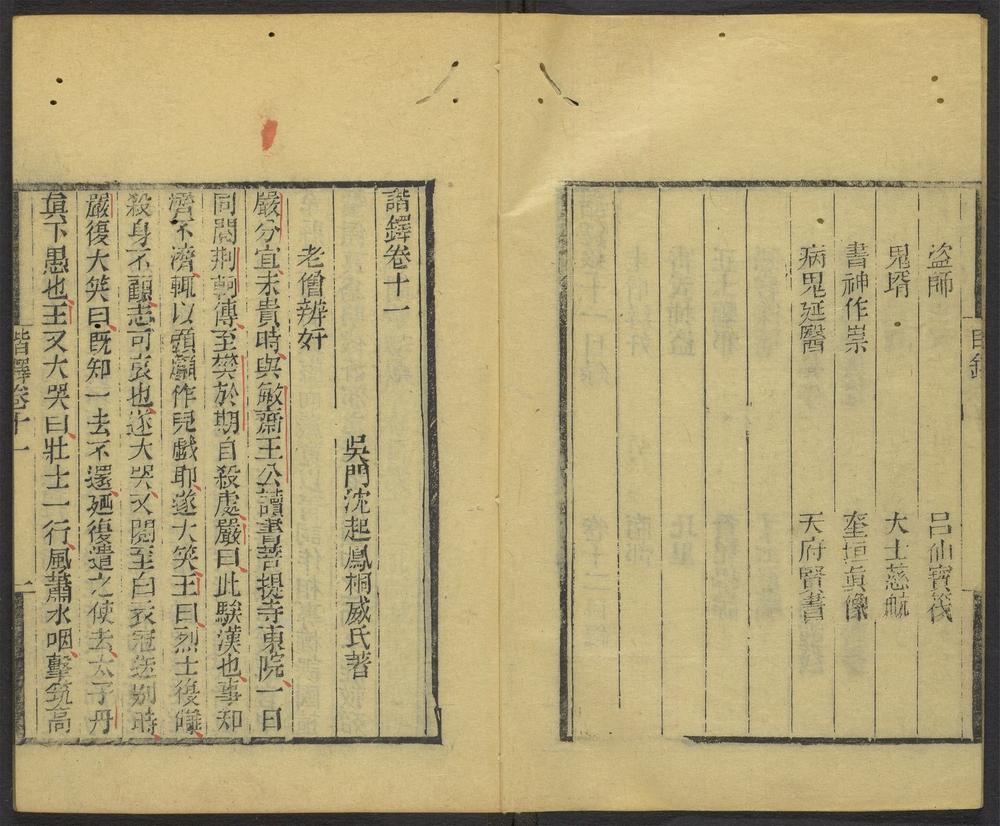 盜師　呂仙寶筏
鬼壻　大士慈航
書神作祟　奎垣眞像
病鬼延醫　天府賢書
目錄
諧鐸卷十一
吳門沈起鳳桐威氏著
老僧辨奸
嚴分宜未貴時與敏齋王公讀書菩提寺東院一日
同閱荆軻傳至樊於期自殺處嚴曰此騃漢也事知
濟不濟輒以頭顱作兒戲耶遂大笑王曰烈士復讎
殺身不顧志可哀也遂大哭又閱至白衣冠送别時
嚴復大笑曰既知一去不還廼復遣之使去太子丹
眞下愚也王又大哭曰壯士一行風蕭水咽擊筑高
諧鐸卷十一　一